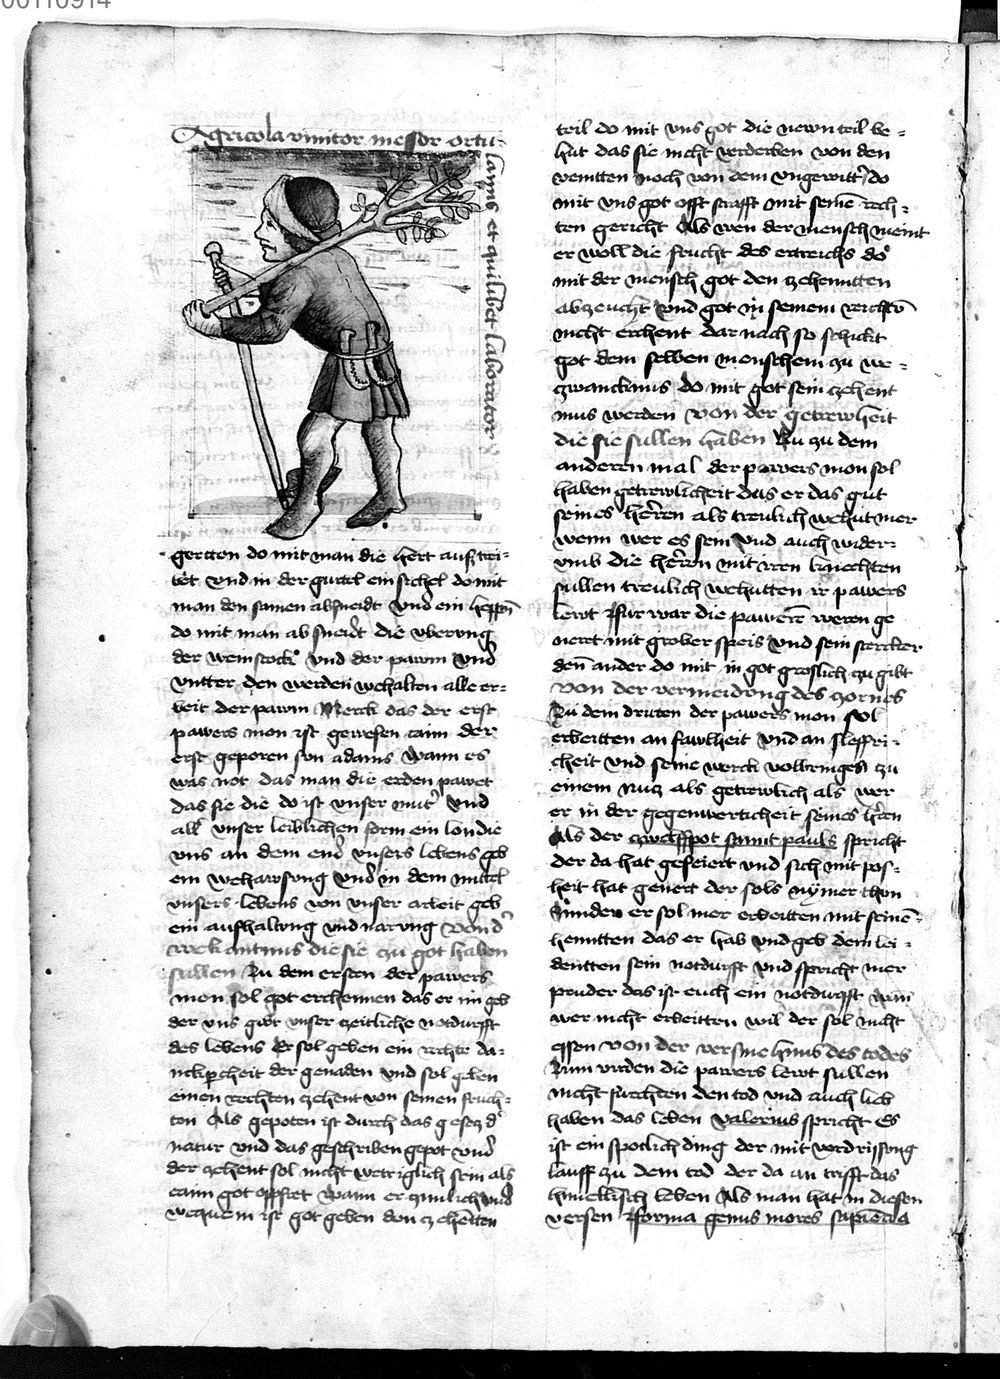 00110914
Agricola vinitor messor ortu-
lanus et quilibet laborator
gerten do mit man die hert auß trei-
bet Vnd in der gurtel ein sichel do mit
man den samen absneidt Vnd ein heppen
do mit man ab sneidt die vberung
der weinstock Vnd der pawm Vnd
Vntter den werden wehalten alle er-
beit der pawm Merck das der erst
pawers mon ist gewesen caim der
erst geporen son adams wann es
was not das man die erden pawet
das sie die do ist vnser muter Vnd
all vnser leiblichen form ein lon die
vns an dem end vnsers lebens geb
ein wehawsung Vnd in dem mittel
vnsers lebens von vnser arbeit geb
ein aufhaltung vnd narung von der
die sie zu got haben
sullen Zu dem ersten der pawers
mon sol got erchennen das er im geb
der vns gibt vnser zeitliche notdurfft
des lebens Er sol geben ein rechte da-
nckperkeit der genaden Vnd sol geben
einen rechten zehent von seinen fruch-
ten Als gepoten ist durch das gesetz der
natur vnd das geschriben gepot vnd
der zehent sol nicht wetriglich sein als
caim got opffret Wann er zimlich vnd
wequem ist got geben den zehenten
teil do mit vns got die newn teil be-
hut das sie nicht verderben von den
veinten noch von dem vngewitter do
mit vns got offt strafft mit seinen rech-
ten gericht Als wen der mensch meint
er woll die frucht des ertreichs do
mit der mensch got den zehennten
abzeucht Vnd got in seinem rechten
nicht erchent dar nach so schickt
got dem selben menschen zu we-
zwancknus do mit got sein zehent
mus werden von der getrewheit
die sie sullen haben Zu zu dem
anderen mal der pawers mon sol
haben getrewlicheit das er das gut
seines herren als treulich wehut mer
wenn wer es sein Vnd auch wider-
vmb die herren mit iren knechten
sullen treulich wehutten ir pawers
lewt Furwar die pawern weren ge
nert mit grober speis Vnd sein stercker
den ander do mit in got groslich zu gibt
von der vermeidung des zornes
Zu dem dritten der pawers mon sol
erbeitten an fawlheit Vnd an sleffri-
cheit vnd seine werck volbringen zu
einem nutz als getrewlich als wer
er in der gegenwerticheit seines herren
Als der zwelffpot sannt pauls spricht
der da hat gefeiert vnd sich mit pos-
heit hat genert der sols nymer thon
Sunder er sol mer erbeitten mit seinen
henntten das er hab vnd geb dem lei-
dentten sein notdurfft vnd spricht mer
pruder das ist euch ein notdurfft wan
wer nicht erbeitten wil der sol nicht
essen von der versmehnus des todes
Nun vierden die pawers lewt sullen
nicht furchten den tod vnd auch lieb
haben das leben Valerius spricht Es
ist ein spotlich ding der mit verdrissung
laufft zu dem tod der da an trifft das
himelisch leben Als man hat in diesen
versen Forma genus mores sapiencia